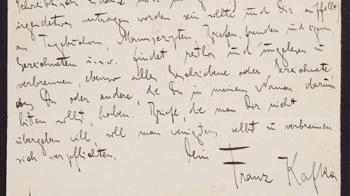 irgendwo vertragen worden sein sollte und Dir auffällt
an Tagebüchern, Manuscripten, Briefen, fremden und eignen
Gezeichnetem u.s.w. findet restlos und ungelesen zu
verbrennen, ebenso alles Geschriebene oder Gezeichnete
das Du oder andere, die Du in meinem Namen darum
bitten sollst, haben. Briefe, die man Dir nicht
übergeben will, soll man wenigstens selbst zu verbrennen
sich verpflichten.
Dein
Franz Kafka